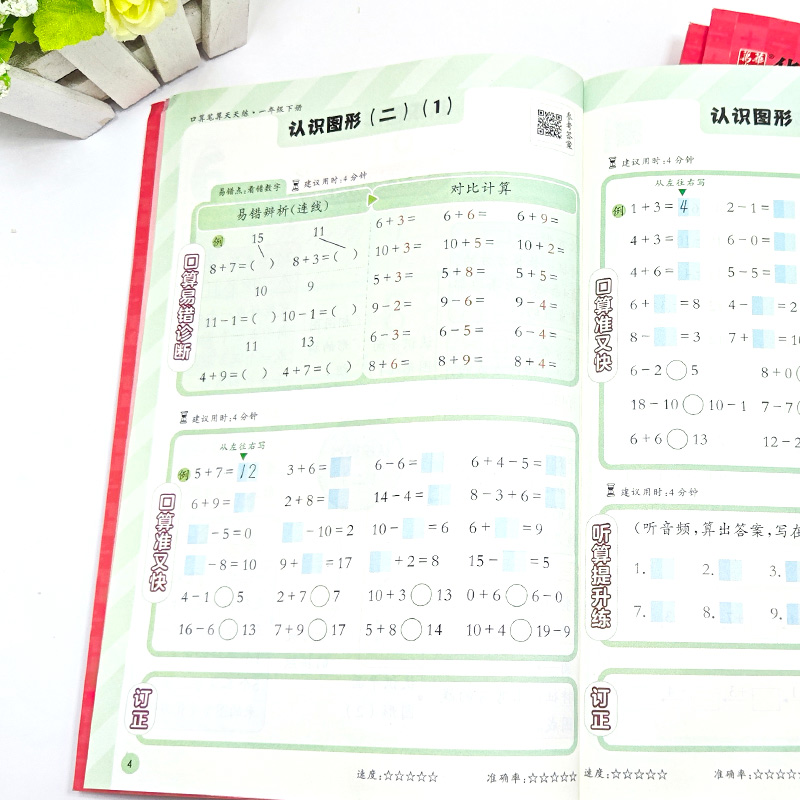 口算笔算天天练·一年级下册
认识图形(二)(1)
参考答案
易错点:看错数字
建议用时:4分钟
口算易错诊断
易错辨析(连线)
例
15 11
8+7=( ) 8+3=( )
10 9
11-1=( ) 10-1=( )
11 13
4+9=( ) 4+7=( )
对比计算
6+3= 6+6= 6+9=
10+3= 10+5= 10+2=
5+3= 5+8= 5+5=
9-2= 9-6= 9-4=
6-3= 6-5= 6-4=
8+6= 8+9= 8+4=
建议用时:4分钟
口算准又快
从左往右写
例 5+7=12 3+6= 6-6= 6+4-5=
6+9= 2+8= 14-4= 8-3+6=
-5=0 -10=2 10- =6 6+ =9
-8=10 9+ =17 +2=8 15- =5
4-1○5 2+7○7 10+3○13 0+6○6-0
16-6○13 7+9○17 5+8○14 10+4○19-9
订正
4
速度:☆☆☆☆☆ 准确率:☆☆☆☆☆
认识图形
建议用时:4分钟
口算准又快
从左往右写
例 1+3=4 2-1=
4+3= 6-0=
4+6= 5-5=
6+ =8 4- =
8- =3 7+ =
6-2○5 8+0
18-10○10-1 7-7
6+6○13 12-2
建议用时:4分钟
听算提升练
(听音频,算出答案,写在
1. 2. 3.
7. 8. 9.
订正
速度:☆☆☆☆☆ 准确率:☆☆☆